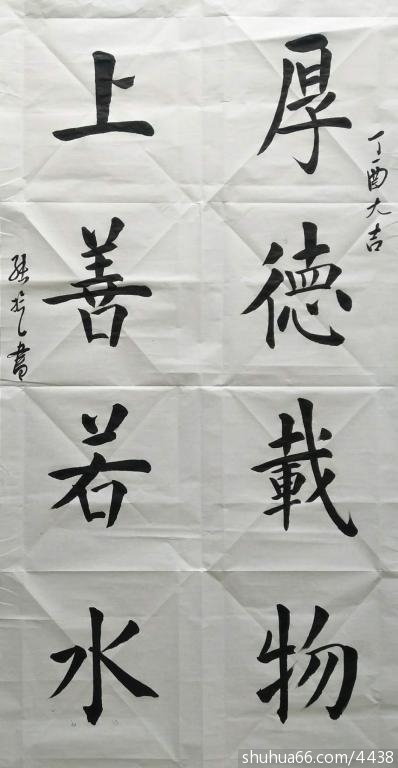 丁酉大吉
厚德載物
上善若水
書
shuhua66.com/4438